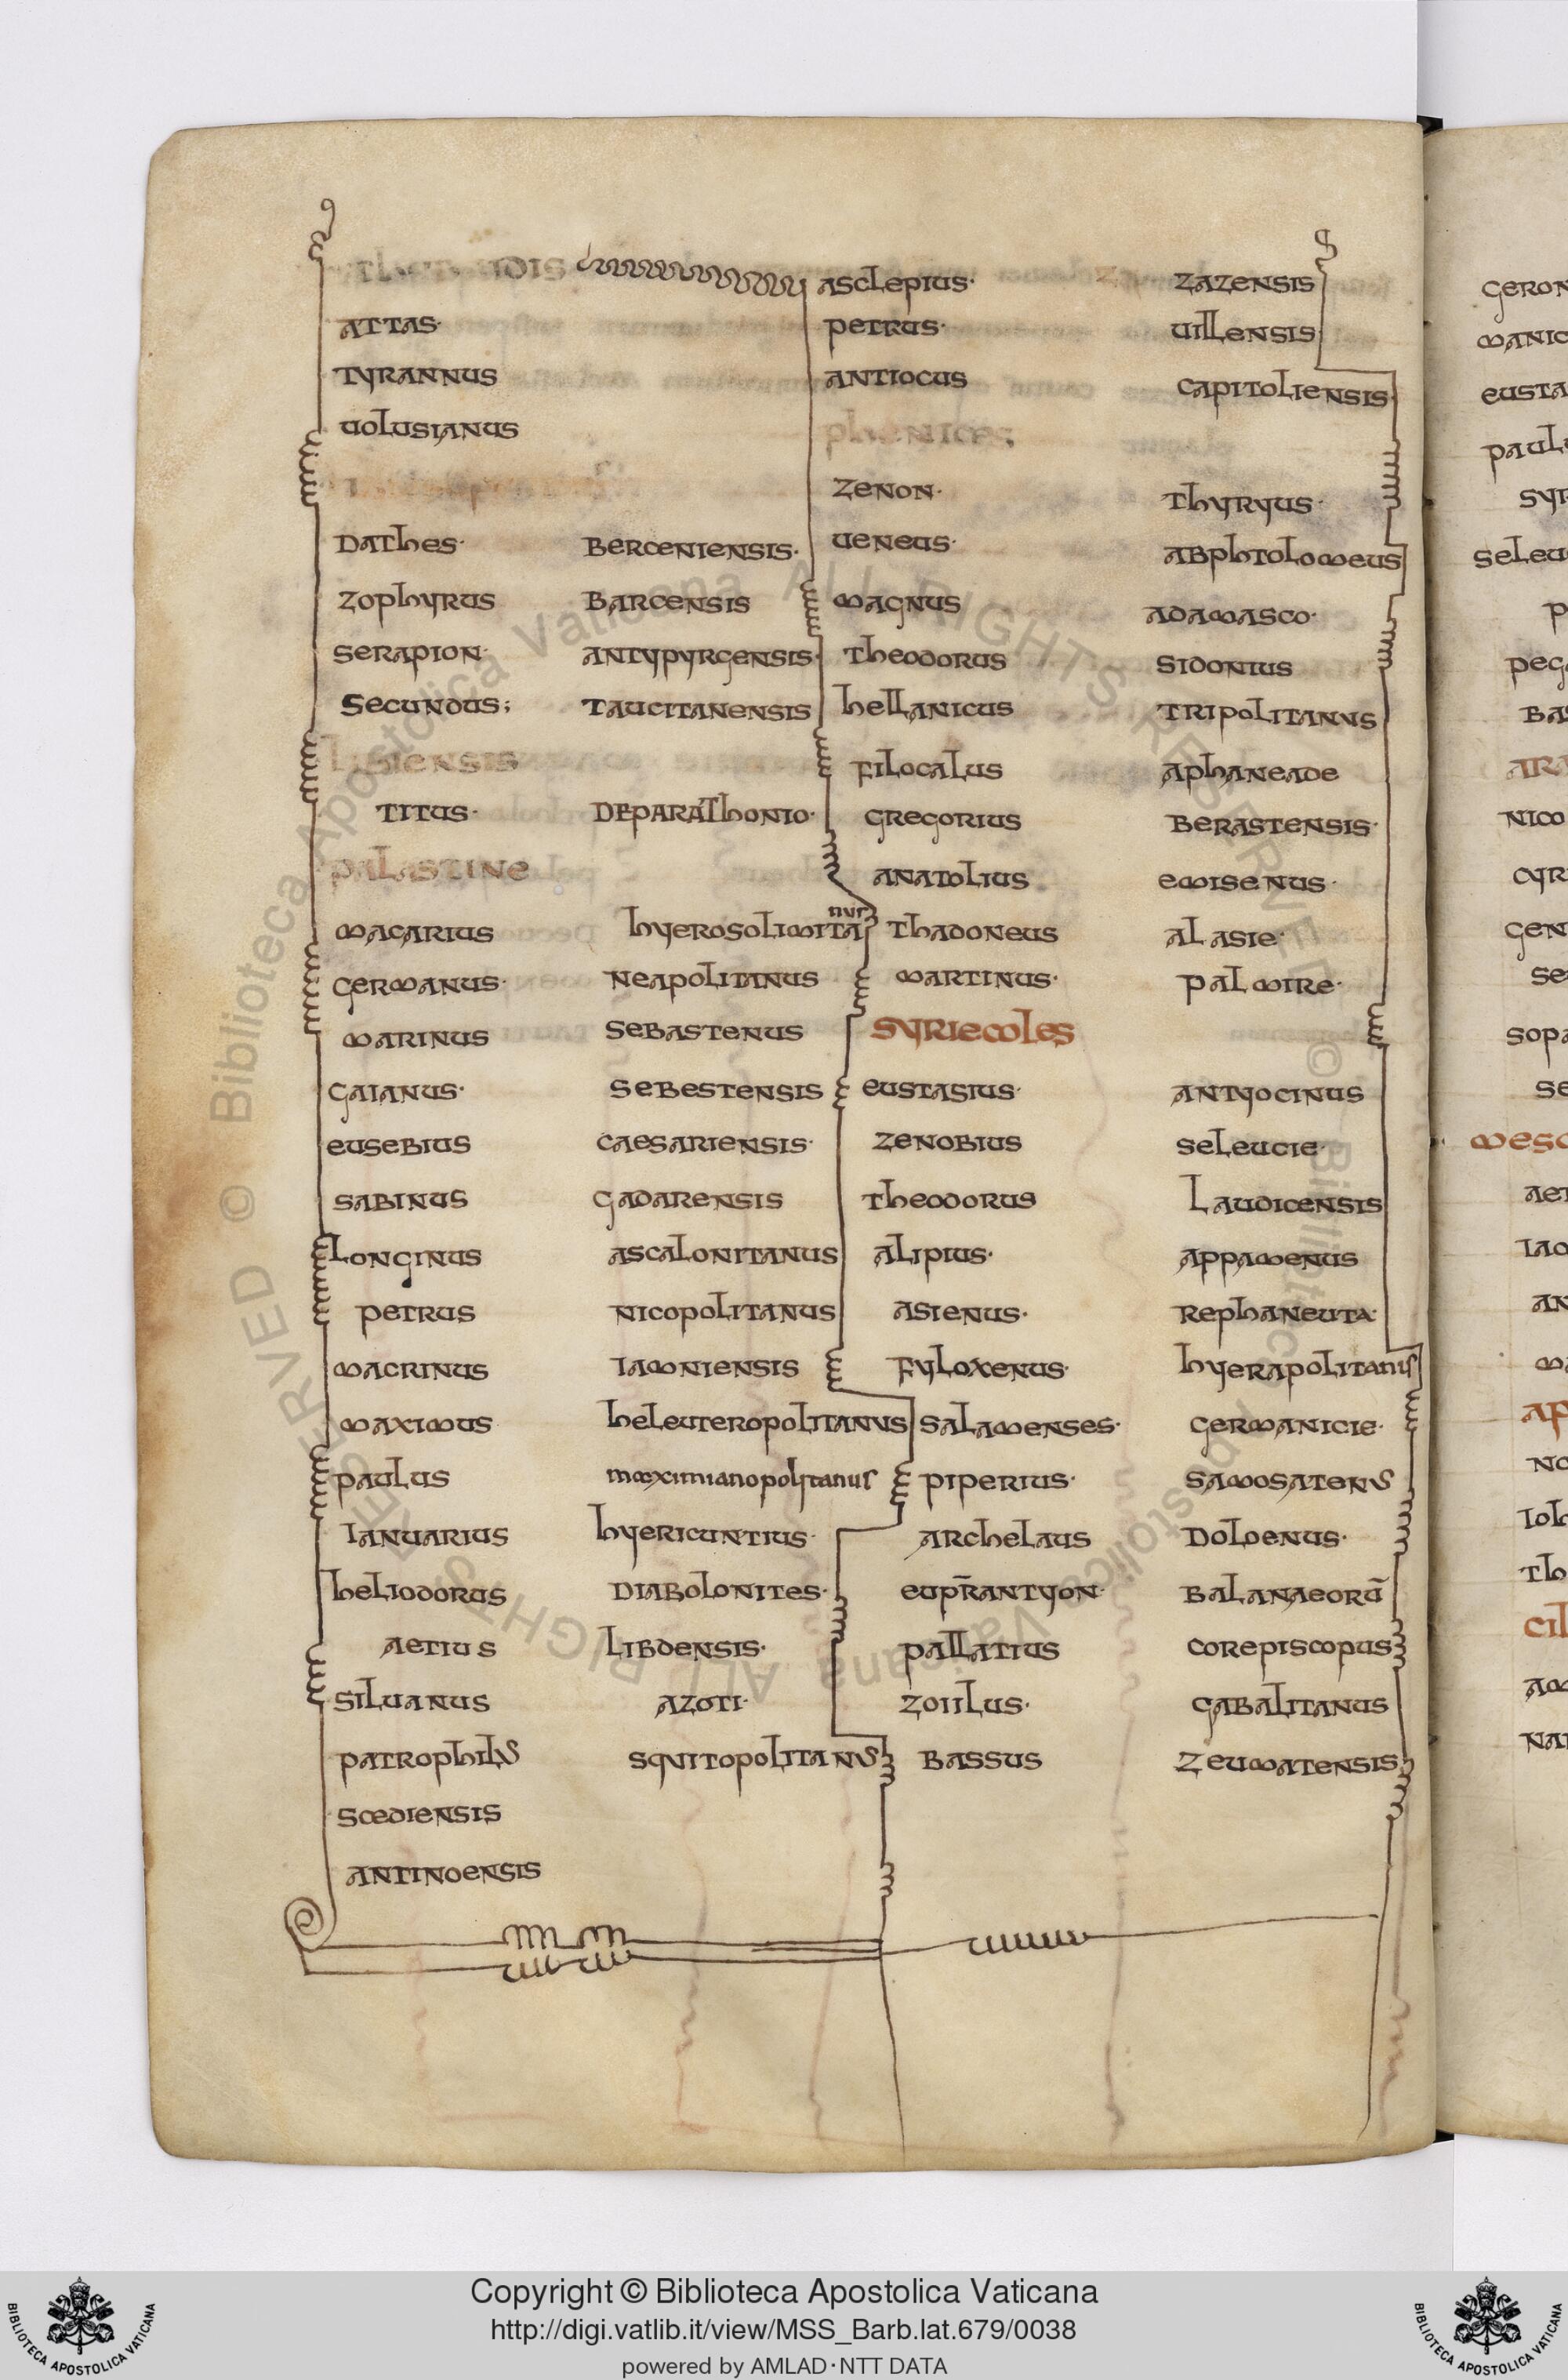 ATTAS·
TYRANNUS
UOLUSIANUS
DAThES· BERCENIENSIS·
ZOPhYRUS BARCENSIS
SERAPION· ANTYPYRGENSIS·
SECUNDUS; TAUCITANENSIS
LISIENSIS
TITUS· DEPARAThONIO·
PALASTINE
MACARIUS hYEROSOLIMITAnur
GERMANUS· NEAPOLITANUS
MARINUS SEBASTENUS
GAIANUS· SEBESTENSIS
EUSEBIUS CAESARIENSIS·
SABINUS GADARENSIS
LONGINUS ASCALONITANUS
PETRUS NICOPOLITANUS
MACRINUS IAMNIENSIS
MAXIMUS hELEUTEROPOLITANVS
PAULUS maximianopolitanus
IANUARIUS hYERICUNTIUS·
hELIODORUS DIABOLONITES·
AETIUS LIBDENSIS·
SILUANUS AZOTI·
PATROPhILVS SQVITOPOLITANVS
SCEDIENSIS
ANTINOENSIS
ASCLEPIUS· ZAZENSIS
PETRUS· UILLENSIS
ANTIOCUS CAPITOLIENSIS
PhENICES;
ZENON· ThYRYUS·
UENEUS· ABPhTOLOMEUS
MAGNUS ADAMASCO·
ThEODORUS SIDONIUS
hELLANICUS TRIPOLITANVS
FILOCALUS APhANEADE
GREGORIUS BERASTENSIS·
ANATOLIUS EMISENUS·
ThADONEUS ALASIE·
MARTINUS· PALMIRE·
SYRIECOLES
EUSTASIUS· ANTYOCINUS
ZENOBIUS SELEUCIE·
ThEODORUS LAUDICENSIS
ALIPIUS· APPAMENUS
ASIENUS· REPhANEUTA·
FYLOXENUS· hYERAPOLITANIS
SALAMENSES· GERMANICIE·
PIPERIUS· SAMOSATENVS
ARChELAUS DOLOENUS·
EUPR̄ANTYON· BALANAEORŪ
PALLATIUS COREPISCOPUS
ZOIILUS· GABALITANUS
BASSUS ZEUMATENSIS
Copyright © Biblioteca Apostolica Vaticana
http://digi.vatlib.it/view/MSS_Barb.lat.679/0038
powered by AMLAD·NTT DATA
BIBLIOTECA APOSTOLICA VATICANA
BIBLIOTECA APOSTOLICA VATICANA